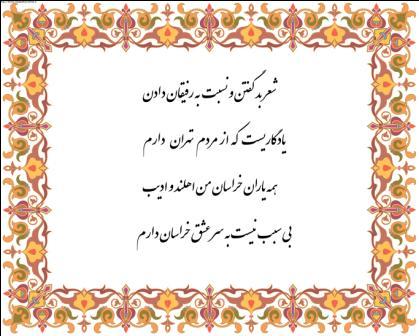 شعر بد گفتن و نسبت به رفیقان دادن
یادگاریست که از مردم تهران دارم
همه یاران خراسان من اهلند و ادیب
بی سبب نیست به سر عشق خراسان دارم